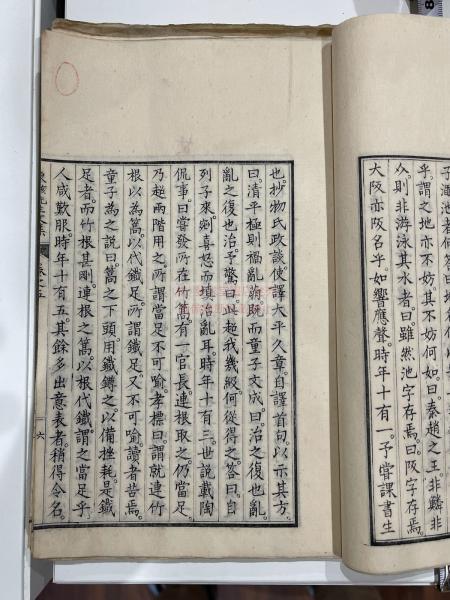 子涵池者何曰地
乎謂之地亦不妨其不妨何如曰秦趙之王非鱗非
介則非游泳其水者曰雖然池字存焉曰阪字存焉
大阪亦阪名乎如響應聲時年十有一予嘗課書生
也抄物氏政談使譯大平久章自譯首句以示其方
曰清平極則禍亂萌既而童子文成曰治之復也亂
亂之復也治予驚曰此超我幾級何從得之答曰自
列子來剡喜怒而填治亂耳時年十有三世說載陶
侃事曰嘗發所在竹篙有一官長連根取之仍當足
乃超兩階用之所謂當足不可喻孝標曰謂就連竹
根以為篙以代鐵足所謂鐵足又不可喻讀者苦焉
童子為之說曰篙之下頭用鐵鐏之以備挫耗是鐵
足者而竹根甚剛連根之篙以根代鐵謂之當足乎
人咸歎服時年十有五其餘多出意表者稍得令名
卷之五
六